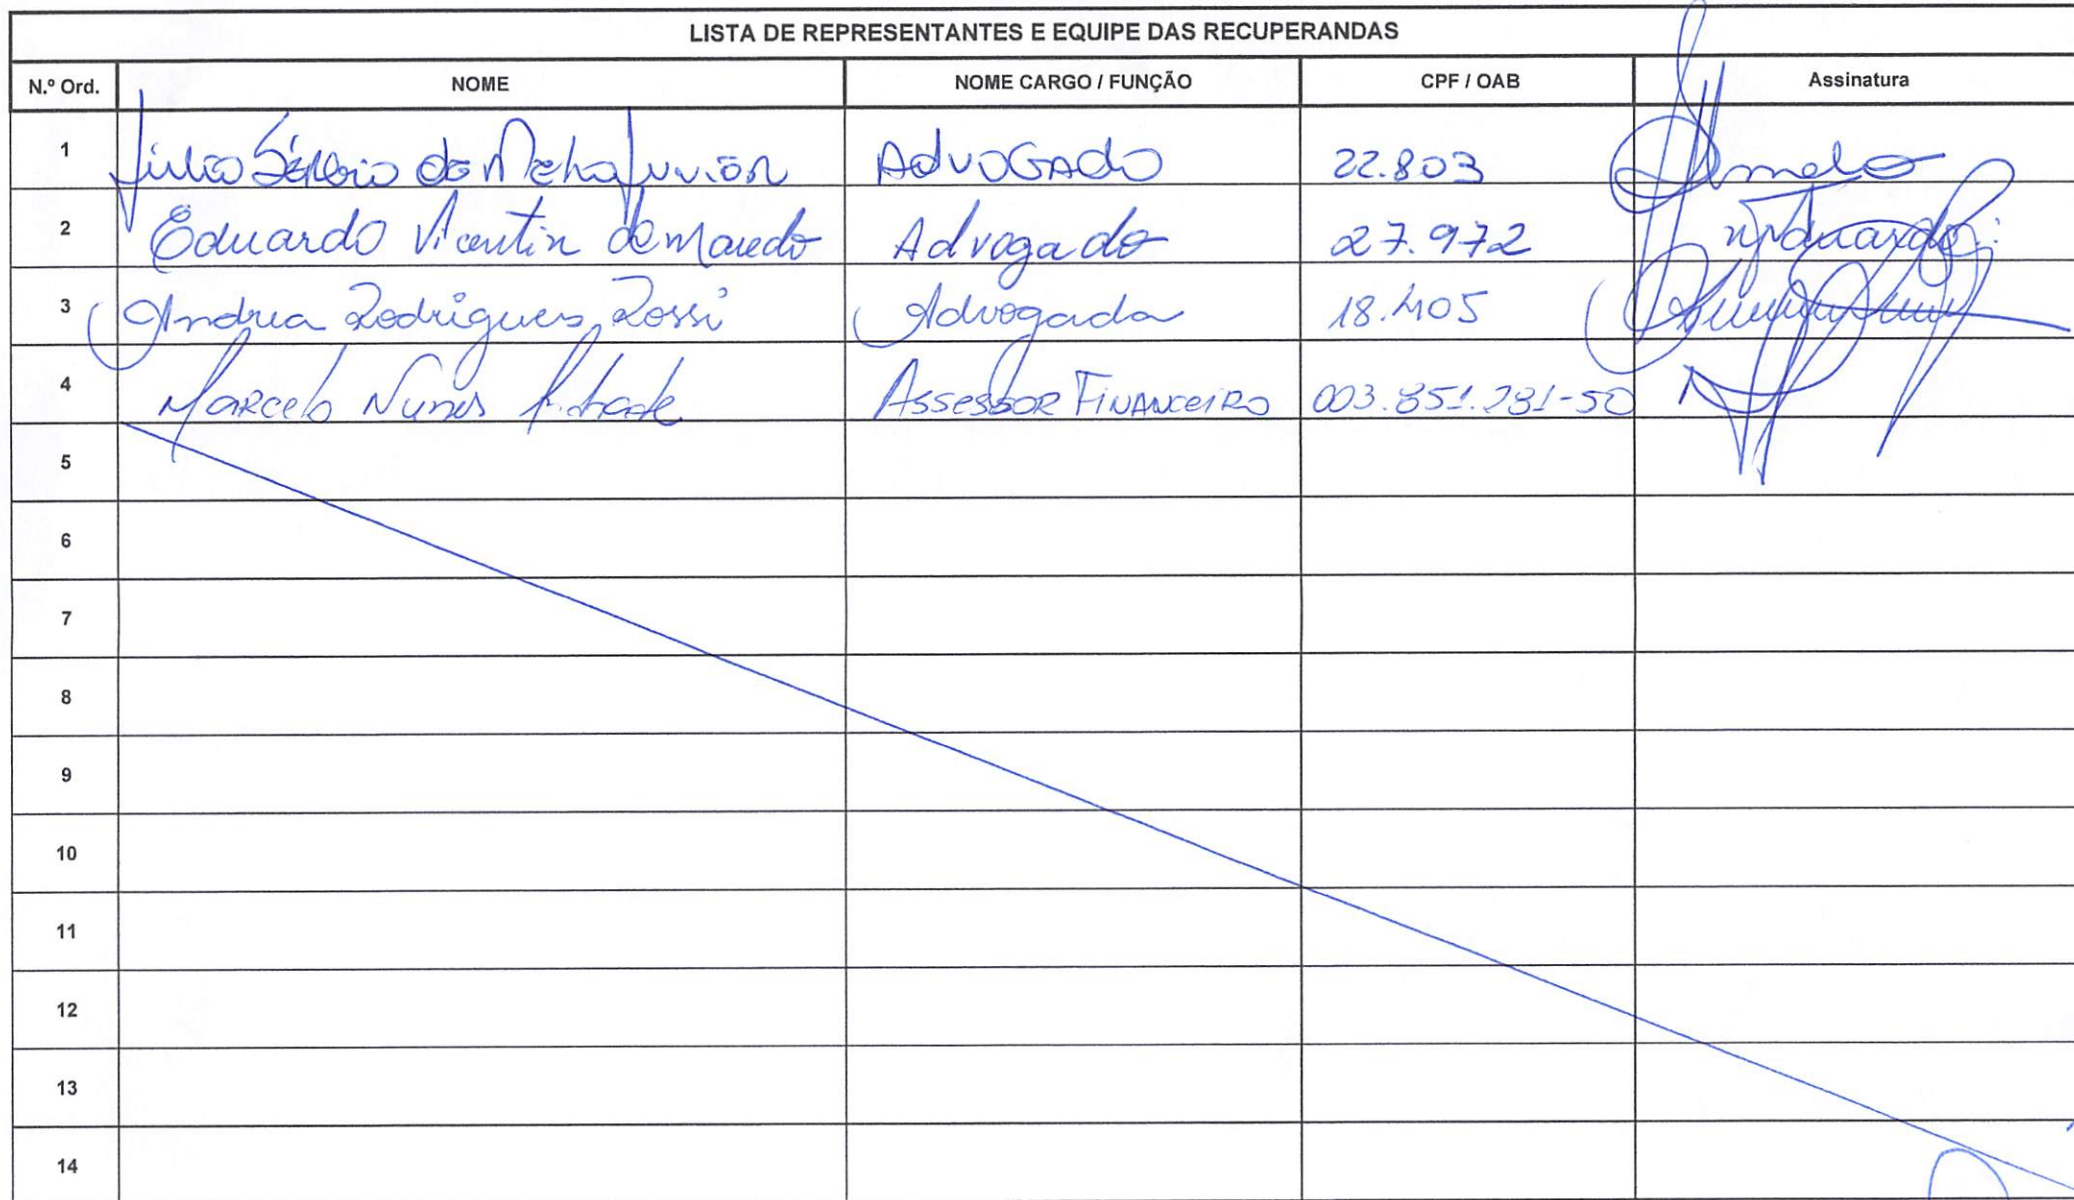 LISTA DE REPRESENTANTES E EQUIPE DAS RECUPERANDAS
N.º Ord. NOME NOME CARGO / FUNÇÃO CPF / OAB Assinatura
1 Júlio Sérgio de Melo Junior ADVOGADO 22.803
2 Eduardo Vicentin de Macedo Advogado 27.972
3 Andrea Rodrigues Rossi Advogada 18.405
4 Marcelo Nunes Andrade Assessor Financeiro
5
6
7
8
9
10
11
12
13
14